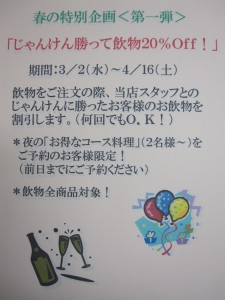 春の特別企画＜第一弾＞
「じゃんけん勝って飲物20％Off！」
期間：3／2（水）～4／16（土）
飲物をご注文の際、当店スタッフとの
じゃんけんに勝ったお客様のお飲物を
割引します。（何回でもO．K！）
＊夜の「お得なコース料理」（2名様～）を
ご予約のお客様限定！
（前日までにご予約ください）
＊飲物全商品対象！